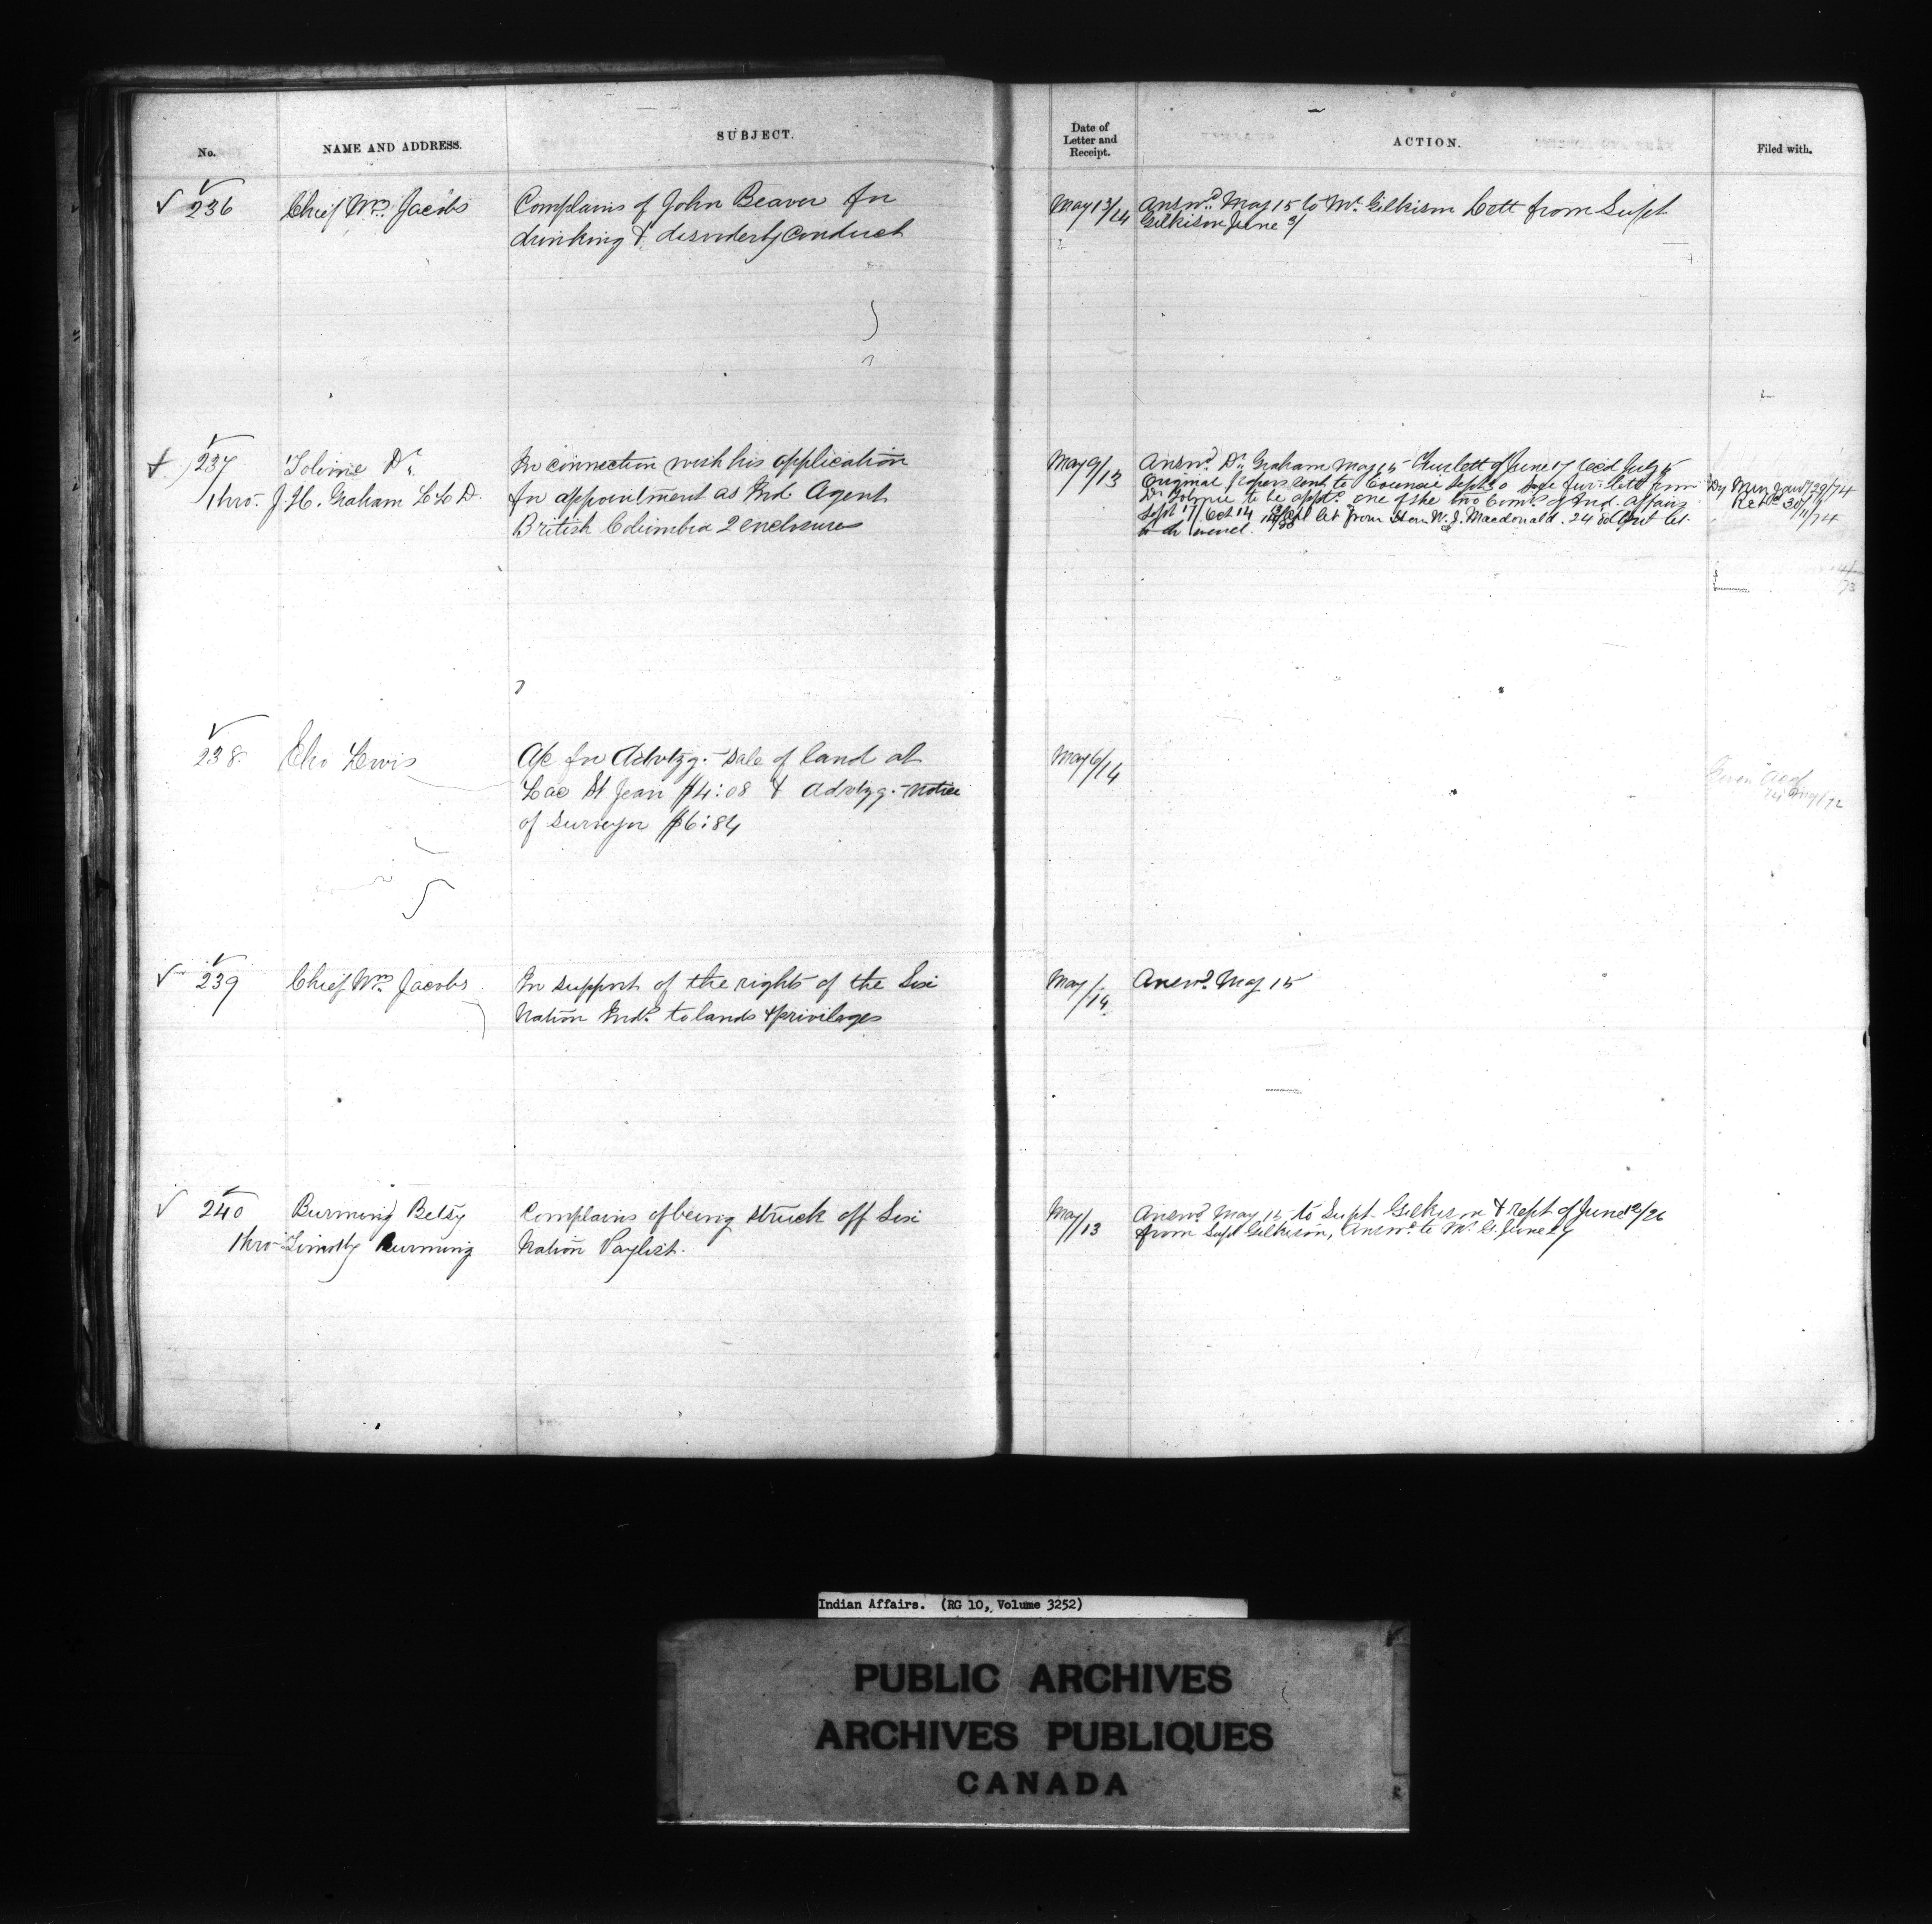 No.
NAME AND ADDRESS.
SUBJECT.
Date of
Letter and
Receipt.
ACTION.
Filed with.
236
Chief Wm. Jacobs
Complains of John Beaver for
drinking & disorderly conduct
May 13/14
Answd. May 15 to Mr. Gilkison Lett from Supt
Gilkison June 3/
237
Tolmie Dr.
thro- J. H. Graham L L D.
In connection with his application
for appointment as Ind. Agent
British Columbia 2 enclosures
May 9/13
Answd. Dr. Graham May 15 lett of June 17 recd July 15
Original papers sent to Council Sept 30 lett from
Dr. Tolmie to be apptd. one of the two Coms. of Ind. Affairs
Sept 17/ Oct 14 let from Hon W. J. Macdonald. 24
29/74
Retd. 30/11/74
238.
Lewis
A/c for Advtzg. Sale of land at
Lac St Jean $4:08 & Advtzg. Notice
of Surveyor $6:84
May 6/14
239
Chief Wm. Jacobs
In support of the rights of the Six
Nation Inds. to lands & privileges
May /14
Answd. May 15
240
Burning Betsy
thro- Timothy Burning
Complains of being struck off Six
Nation Paylist.
May /13
Answd. May 15 to Supt. Gilkison & rept of June 12/26
from Supt Gilkison, Answd. to Mr. G. June 27
Indian Affairs. (RG 10, Volume 3252)
PUBLIC ARCHIVES
ARCHIVES PUBLIQUES
CANADA